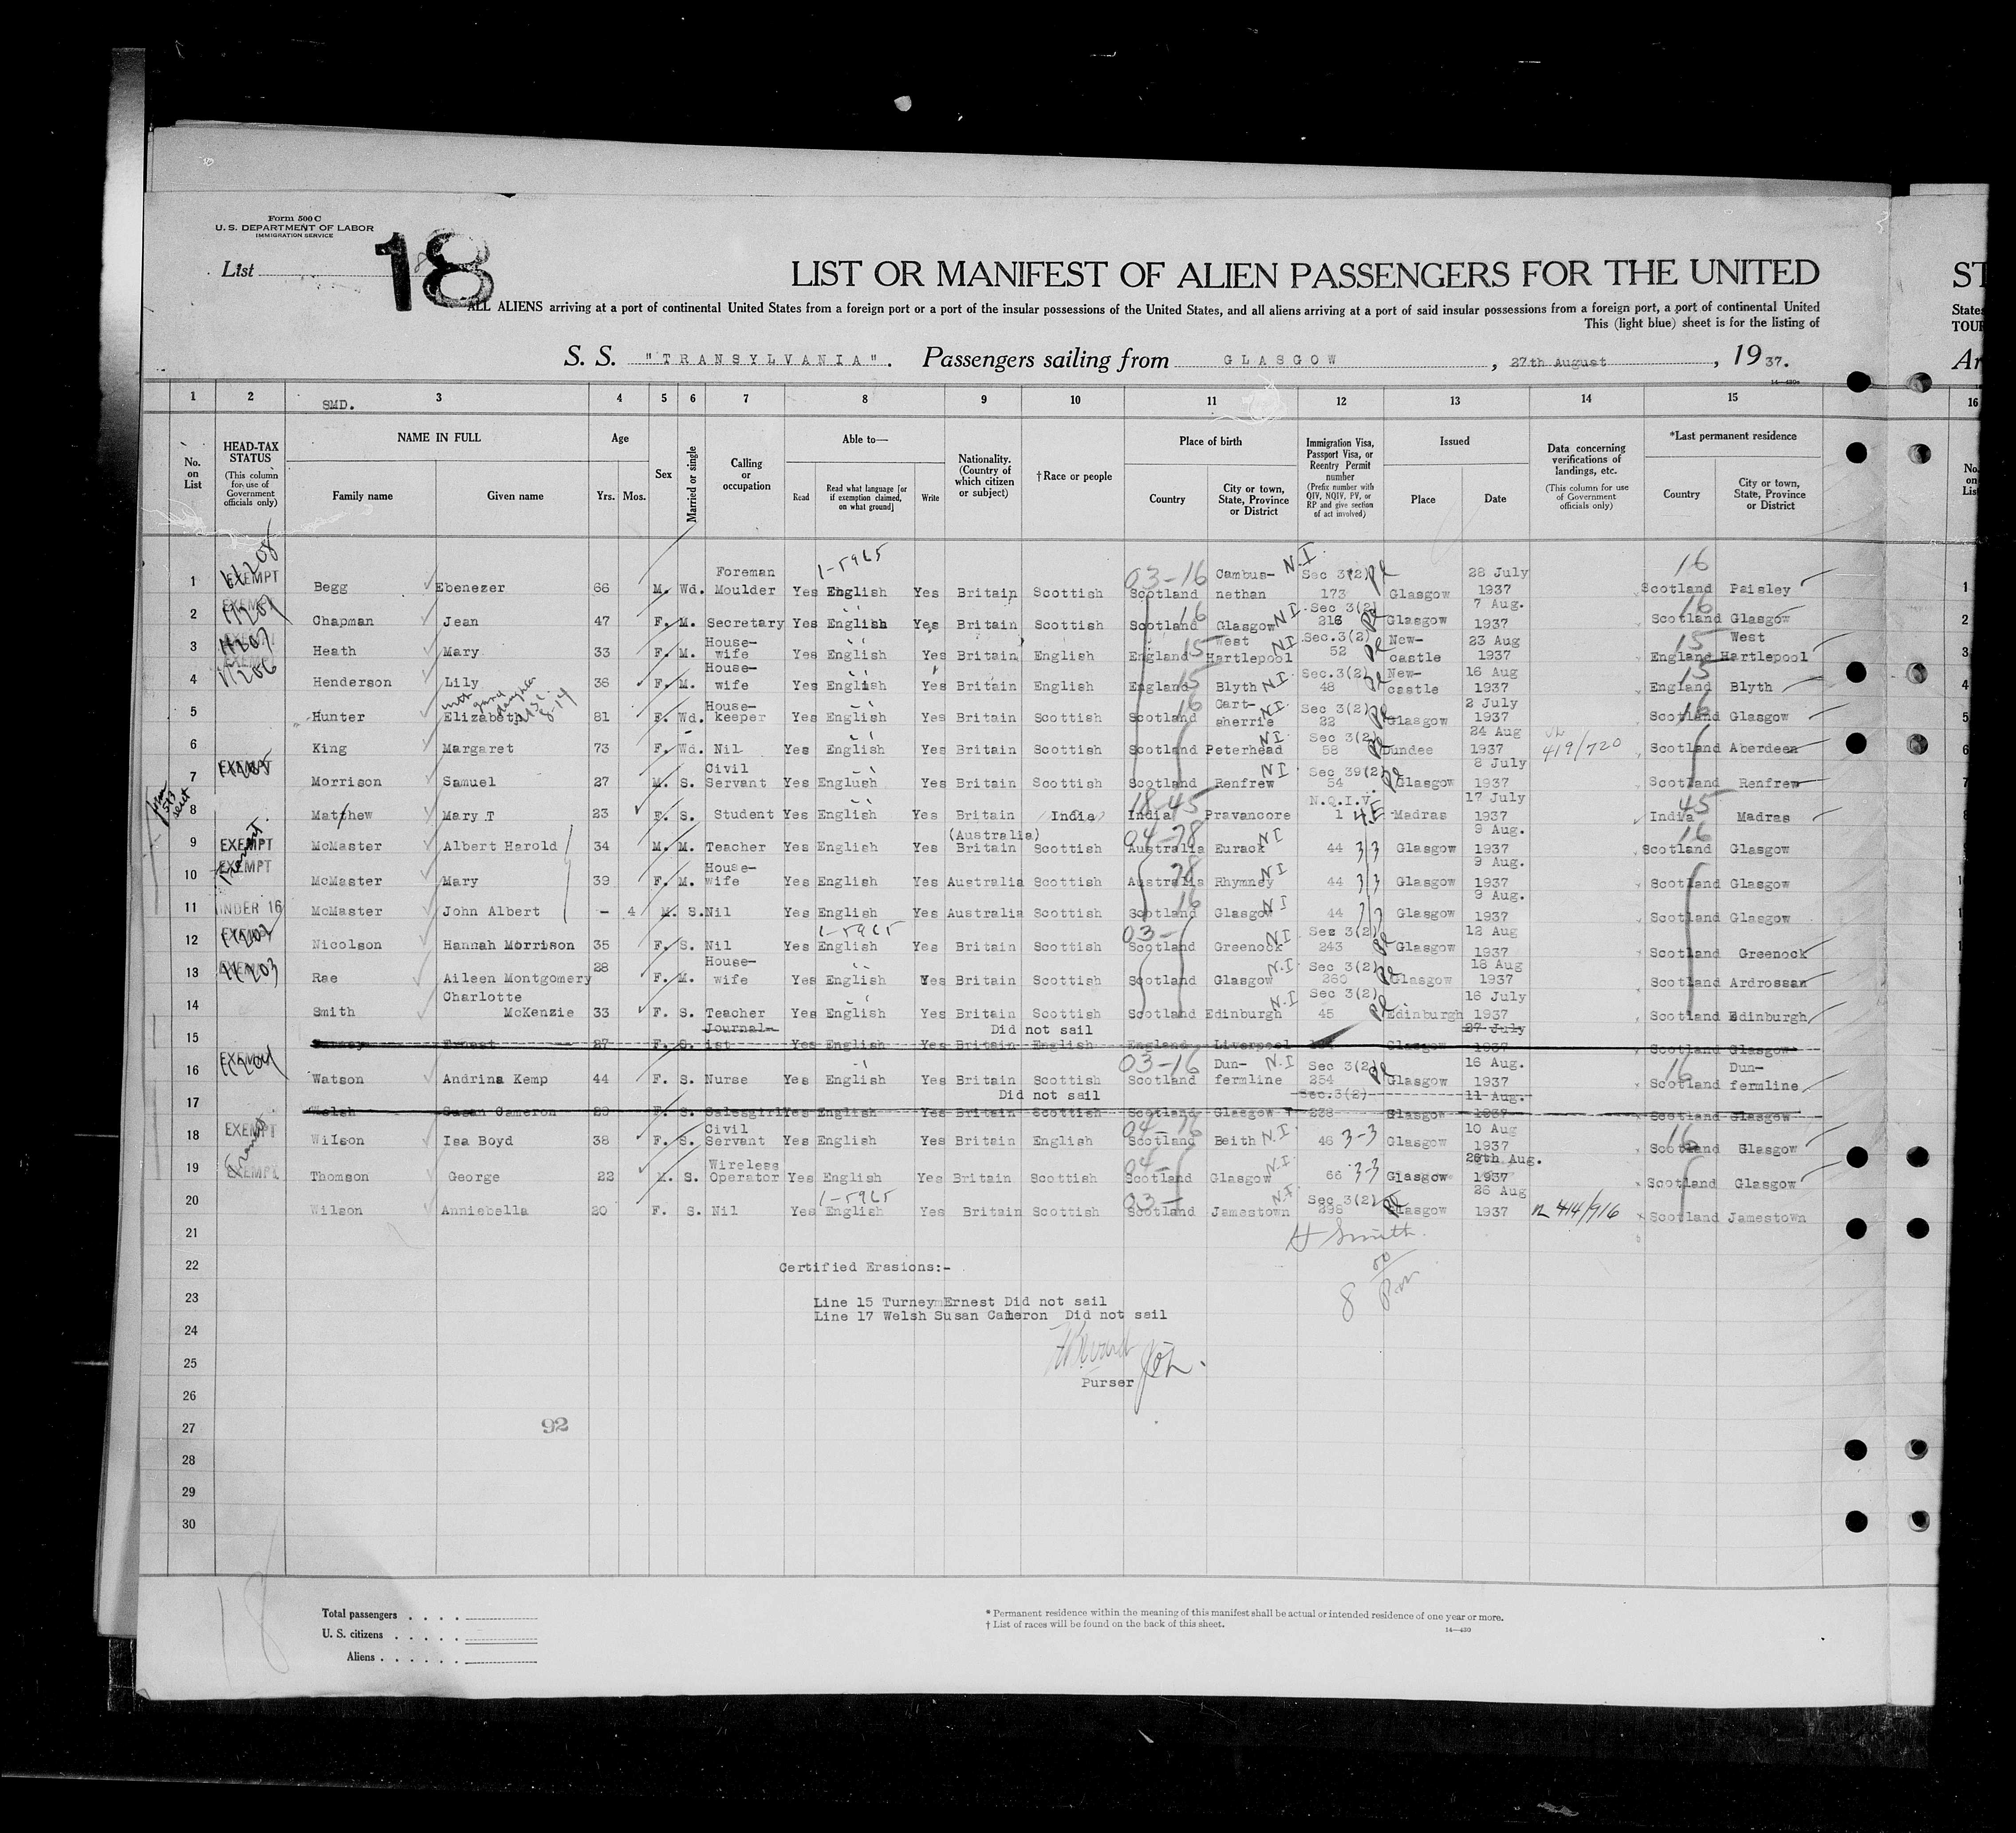 Form 500 C
U. S. DEPARTMENT OF LABOR
IMMIGRATION SERVICE
List 18
LIST OR MANIFEST OF ALIEN PASSENGERS FOR THE UNITED
ST
ALL ALIENS arriving at a port of continental United States from a foreign port or a port of the insular possessions of the United States, and all aliens arriving at a port of said insular possessions from a foreign port, a port of continental United
States
This (light blue) sheet is for the listing of
TOUR
S. S. "TRANSYLVANIA". Passengers sailing from GLASGOW, 27th August, 1937.
Ar
14—430a
1 2 3 4 5 6 7 8 9 10 11 12 13 14 15 16
SMD.
No. on List
HEAD-TAX STATUS (This column for use of Government officials only)
NAME IN FULL Family name Given name
Age Yrs. Mos.
Sex
Married or single
Calling or occupation
Able to— Read Read what language [or if exemption claimed, on what ground] Write
Nationality. (Country of which citizen or subject)
†Race or people
Place of birth Country City or town, State, Province or District
Immigration Visa, Passport Visa, or Reentry Permit number (Prefix number with QIV, NQIV, PV, or RP and give section of act involved)
Issued Place Date
Data concerning verifications of landings, etc. (This column for use of Government officials only)
*Last permanent residence Country City or town, State, Province or District
1 EXEMPT Begg Ebenezer 66 M. Wd. Foreman Moulder Yes English 1-5965 Yes Britain Scottish 03-16 Scotland Cambus-nethan N.I. Sec 3(2) 173 Glasgow 28 July 1937 16 Scotland Paisley
2 Chapman Jean 47 F. M. Secretary Yes English Yes Britain Scottish Scotland 16 Glasgow N I Sec 3(2) 216 Glasgow 7 Aug. 1937 16 Scotland Glasgow
3 Heath Mary 33 F. M. House-wife Yes English Yes Britain English England 15 West Hartlepool N I Sec.3(2) 52 New-castle 23 Aug 1937 15 England West Hartlepool
4 Henderson Lily 38 F. M. House-wife Yes English Yes Britain English England 15 Blyth N I. Sec.3(2) 48 New-castle 16 Aug 1937 15 England Blyth
5 Hunter Elizabeth with grand daughter 81 F. Wd. House-keeper Yes English Yes Britain Scottish Scotland 16 Cart-sherrie N I. Sec 3(2) 22 Glasgow 2 July 1937 16 Scotland Glasgow
6 King Margaret 73 F. Wd. Nil Yes English Yes Britain Scottish Scotland Peterhead N I Sec 3(2) 58 Dundee 24 Aug 1937 419/720 Scotland Aberdeen
7 EXEMPT Morrison Samuel 27 M. S. Civil Servant Yes English Yes Britain Scottish Scotland Renfrew N I Sec 39(2) 54 Glasgow 8 July 1937 Scotland Renfrew
8 Matthew Mary T 23 F. S. Student Yes English Yes Britain India 18-45 India Pravancore N.Q.I.V. 1 4E Madras 17 July 1937 45 India Madras
9 EXEMPT McMaster Albert Harold 34 M. M. Teacher Yes English Yes (Australia) Britain Scottish 04-78 Australia Eurack N I 44 3/3 Glasgow 9 Aug. 1937 16 Scotland Glasgow
10 EXEMPT McMaster Mary 39 F. M. House-wife Yes English Yes Australia Scottish 78 Australia Rhymney N I 44 3/3 Glasgow 9 Aug. 1937 Scotland Glasgow
11 UNDER 16 McMaster John Albert – 4 M. S. Nil Yes English Yes Australia Scottish 16 Scotland Glasgow N I 44 Glasgow 9 Aug. 1937 Scotland Glasgow
12 Nicolson Hannah Morrison 35 F. S. Nil Yes English 1-5965 Yes Britain Scottish 03- Scotland Greenock N I Sec 3(2) 243 Glasgow 12 Aug 1937 Scotland Greenock
13 Rae Aileen Montgomery 28 F. M. House-wife Yes English Yes Britain Scottish Scotland Glasgow N.I. Sec 3(2) 260 Glasgow 18 Aug 1937 Scotland Ardrossan
14 Smith Charlotte McKenzie 33 F. S. Teacher Yes English Yes Britain Scottish Scotland Edinburgh N.I Sec 3(2) 45 Edinburgh 16 July 1937 Scotland Edinburgh
15 Ernest 27 F. S. Journal-ist Yes English Yes Britain English Did not sail England Liverpool Glasgow 27 July 1937 Scotland Glasgow
16 Watson Andrina Kemp 44 F. S. Nurse Yes English Yes Britain Scottish 03-16 Scotland Dun-fermline N.I Sec 3(2) 254 Glasgow 16 Aug. 1937 16 Scotland Dun-fermline
17 Welsh Susan Cameron 29 F. S. Salesgirl Yes English Yes Britain Scottish Did not sail Scotland Glasgow Sec.3(2) 238 Glasgow 11 Aug. 1937 Scotland Glasgow
18 EXEMPT Wilson Isa Boyd 38 F. S. Civil Servant Yes English Yes Britain English 04-16 Scotland Beith N.I. 46 3-3 Glasgow 10 Aug 1937 16 Scotland Glasgow
19 EXEMPT Thomson George 22 M. S. Wireless Operator Yes English Yes Britain Scottish 04- Scotland Glasgow N.I. 66 3-3 Glasgow 26th Aug. 1937 Scotland Glasgow
20 Wilson Anniebella 20 F. S. Nil Yes English 1-5965 Yes Britain Scottish 03- Scotland Jamestown N.I Sec 3(2) 298 Glasgow 26 Aug 1937 414/916 Scotland Jamestown
21 H Smith
22 Certified Erasions:-
23 Line 15 Turney Ernest Did not sail
Line 17 Welsh Susan Cameron Did not sail
24
25
Purser
26
27 92
28
29
30
18
Total passengers
U. S. citizens
Aliens
* Permanent residence within the meaning of this manifest shall be actual or intended residence of one year or more.
† List of races will be found on the back of this sheet.
14—430